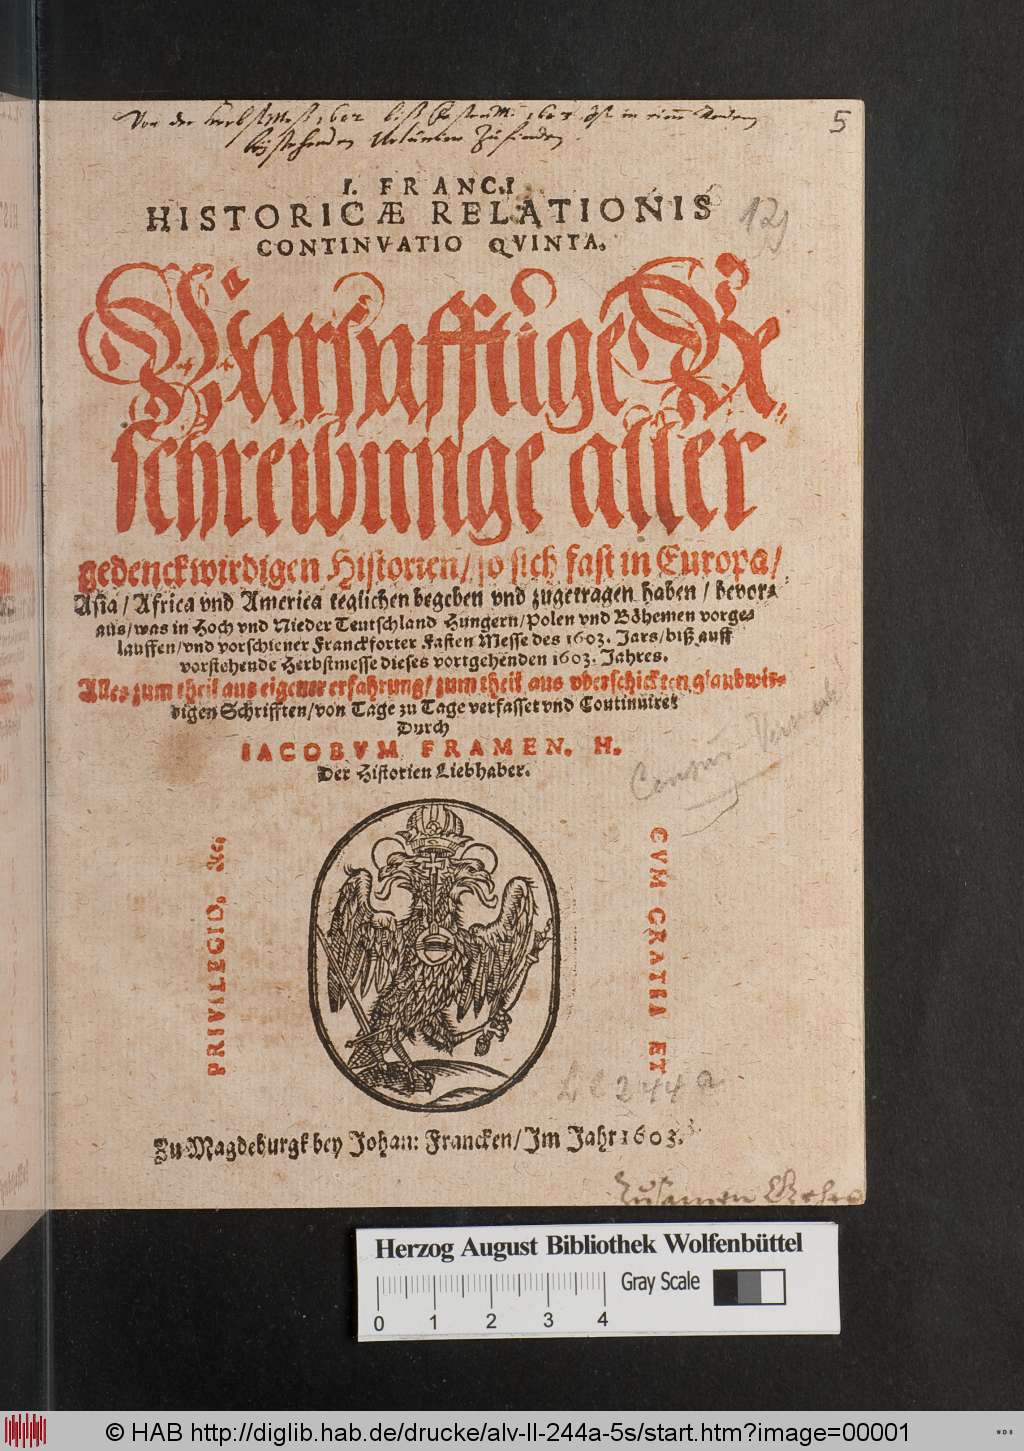 Von der 1602
5
I. FRANCI
HISTORICÆ RELATIONIS
CONTINVATIO QVINTA.
129
Warhafftige Be-
schreibunge aller
gedenckwirdigen Historien/ so sich fast in Europa/
Asia/ Africa vnd America teglichen begeben vnd zugetragen haben/ bevor-
aus/ was in Hoch vnd Nieder Teutschland Hungern/ Polen vnd Böhemen vorge-
lauffen/ vnd vorschiener Franckforter Fasten Messe des 1603. Jars/ biß auff
vorstehende Herbstmesse dieses vortgehenden 1603. Jahres.
Alles zum theil aus eigener erfahrung/ zum theil aus vberschickten glaubwir-
digen Schrifften/ von Tage zu Tage verfasset vnd Continuiret
Durch
IACOBVM FRAMEN. H.
Der Historien Liebhaber.
CVM GRATIA ET
PRIVILEGIO, &c.
244 a
Zu Magdeburgk bey Johan: Francken/ Im Jahr 1603.
Zusamen
Herzog August Bibliothek Wolfenbüttel
Gray Scale
0 1 2 3 4
© HAB http://diglib.hab.de/drucke/alv-ll-244a-5s/start.htm?image=00001